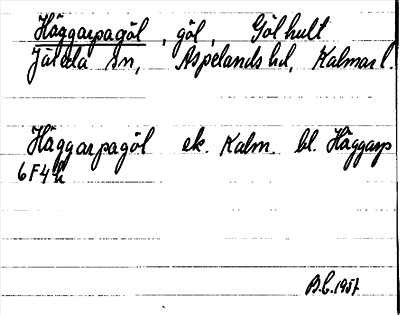 Häggarpagöl, göl, Gölhult
Järeda sn, Aspelands hd, Kalmar l.
Häggarpagöl ek. Kalm. bl. Häggarp
6F4h
B.C. 1957